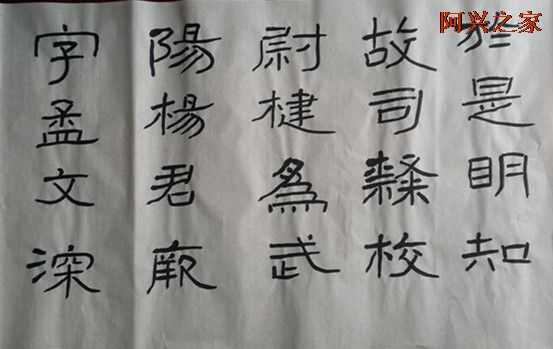 於是明知
故司隸校
尉楗為武
陽楊君厥
字孟文深
阿兴之家